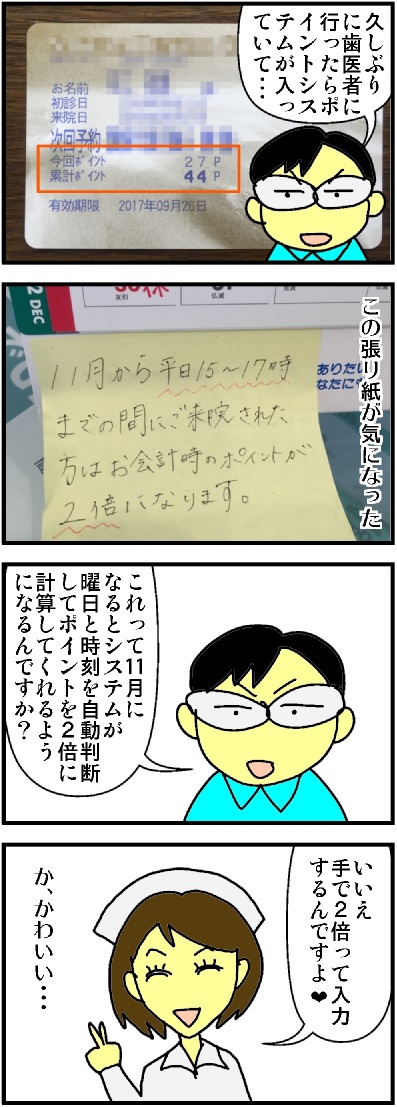 久しぶり
に歯医者に
行ったらポ
イントシス
テムが入っ
ていて・・・
お名前
初診日
来院日
次回予約
今回ポイント 27 P
累計ポイント 44 P
有効期限 2017年09月26日
この張り紙が気になった
2 DEC
友引
仏滅
ありたい
なたに
11月から平日15〜17時
までの間にご来院された
方はお会計時のポイントが
2倍になります。
これって11月に
なるとシステムが
曜日と時刻を自動判断
してポイントを2倍に
計算してくれるよう
になるんですか？
いいえ
手で2倍って入力
するんですよ❤
か、かわいい・・・